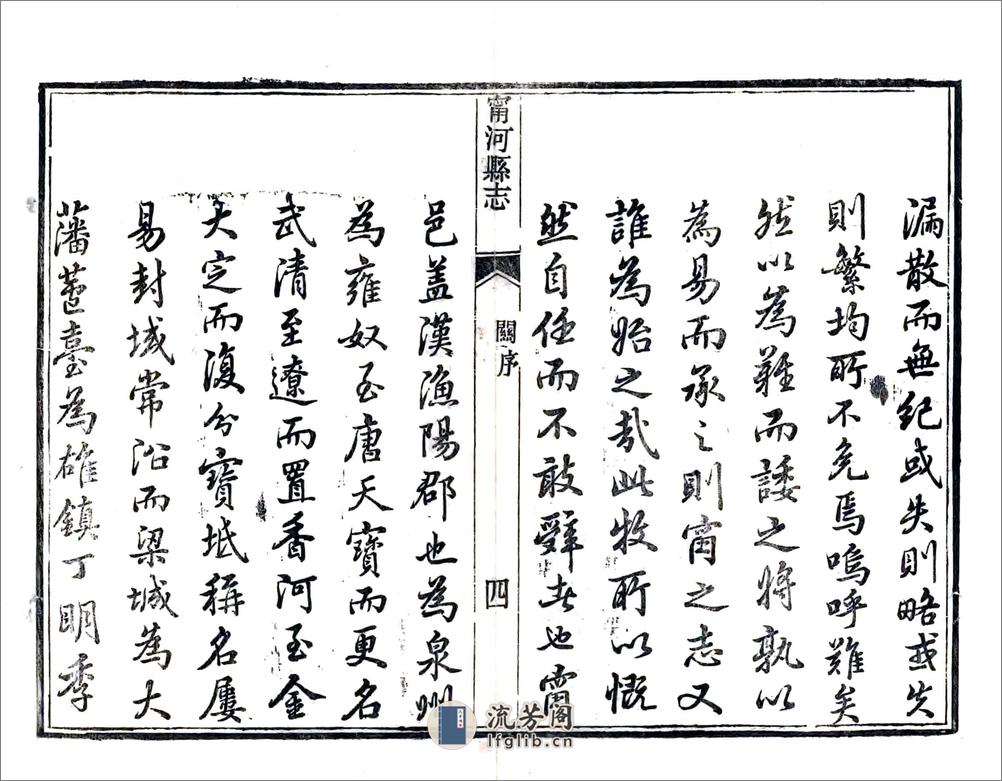 漏散而無紀或失則略或失
則繁均所不免焉嗚呼難矣
然以為難而諉之將孰以
為易而承之則甯之志又
誰為貽之哉此牧所以慨
然自任而不敢辭者也甯
甯河縣志
關序
四
邑蓋漢漁陽郡也為泉州
為雍奴至唐天寶而更名
武清至遼而置香河至金
大定而復分寶坻稱名屢
易封域常沿而梁城為大
藩蘆臺為雄鎮丁明季
流芳阁
lfglib.cn